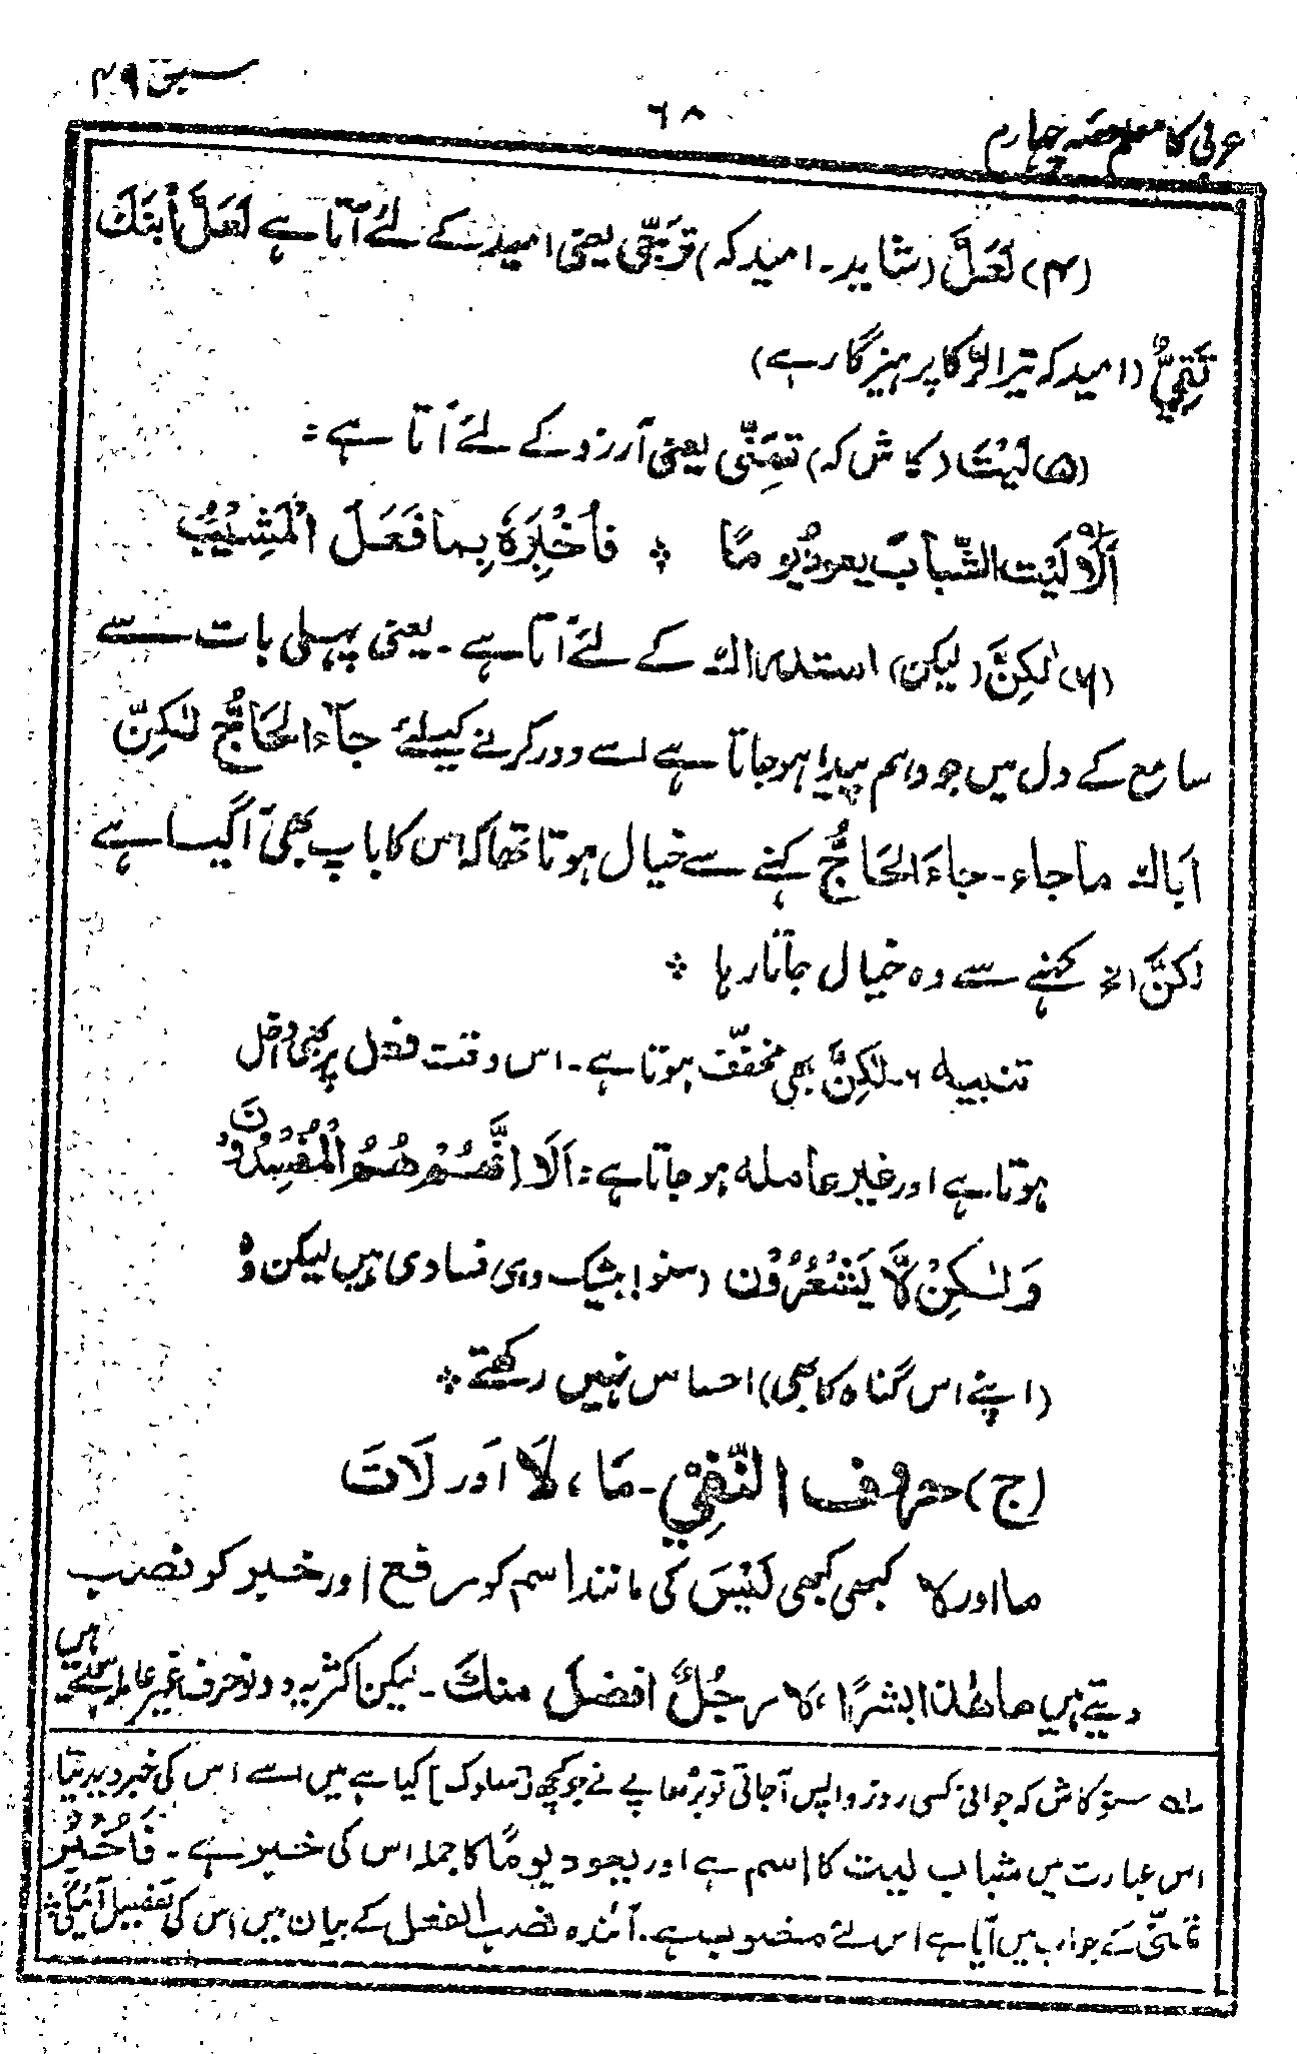 عربی کا معلم حصہ چہارم
۶۸
سبق ۴۹
(۴) لَعَلَّ (شاید۔ امید کہ) تَرَجّی یعنی امید کے لئے آتا ہے لَعَلَّ ابْنَكَ
تَقِیٌّ (امید کہ تیرا لڑکا پرہیزگار ہے)
(۵) لَیْتَ (کاش کہ) تَمَنّی یعنی آرزو کے لئے آتا ہے :
اَلَا لَیْتَ الشّبابَ یعودُ یومًا ؞ فاُخْبِرَہٗ بِمَا فَعَلَ الْمَشِیْبُ
(۶) لٰکِنَّ (لیکن) استدراك کے لئے آتا ہے ۔ یعنی پہلی بات سے
سامع کے دل میں جو واہم پیدا ہوجاتا ہے اسے دور کرنے کیلئے جآءَ الحَاجُّ لٰکِنّ
اَباك ماجاء ۔ جاءَ الحَاجُّ کہنے سے خیال ہوتا تھا کہ اس کا باپ بھی آگیا ہے
لٰکنَّ الخ کہنے سے وہ خیال جاتا رہا ؞
تنبیہ ۶۔ لٰکِنَّ بھی مخفَّف ہوتا ہے ۔ اس وقت فعل پر بھی داخل
ہوتا ہے اور غیر عاملہ ہو جاتا ہے : اَلَا اِنَّهُمْ هُمُ الْمُفْسِدُوْنَ
وَلٰکِنْ لَّا یَشْعُرُوْن (سنو! بیشک وہی فسادی ہیں لیکن وُہ
(اپنے اس گناہ کا بھی) احساس نہیں رکھتے ؞
(ج) حروف النّفِیْ ۔ مَا ، لَا اَور لَاتَ
ما اور لا کبھی کبھی لَیْسَ کی مانند اسم کو رفع اور خبر کو نصب
دیتے ہیں ماھٰذا بشرًا ، لا رجُلٌ افضلَ منكَ ۔ لیکن اکثر یہ دونو حرف غیر عاملہ رہتے ہیں
؎۱ سنو کاش کہ جوانی کسی روز واپس آجاتی تو بڑھاپے نے جو کچھ [سلوک] کیا ہے میں اسے اس کی خبر دیدیتا۔
اس عبارت میں شباب لیت کا اسم ہے اور یعود یومًا کا جملہ اس کی خبر ہے ۔ فَاُخْبِرَ
تمنّی کے جواب میں آیا ہے اس لئے منصوب ہے ۔ آئندہ نصب الفعل کے بیان میں اس کی تفصیل آئیگی ؞